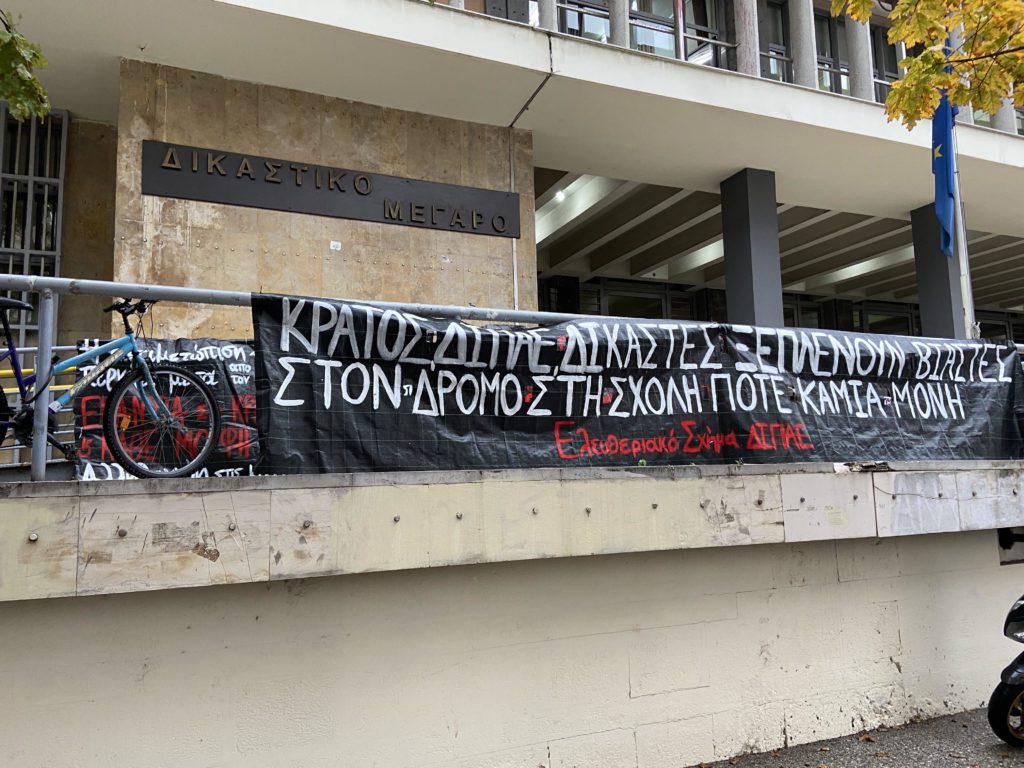 ΔΙΚΑΣΤΙΚΟ
ΜΕΓΑΡΟ
ΚΡΑΤΟΣ, ΔΙΠΑΕ, ΔΙΚΑΣΤΕΣ ΞΕΠΛΕΝΟΥΝ ΒΙΑΣΤΕΣ
ΣΤΟΝ ΔΡΟΜΟ ΣΤΗ ΣΧΟΛΗ ΠΟΤΕ ΚΑΜΙΑ ΜΟΝΗ
Ελευθεριακό Σχήμα ΔΙΠΑΕ